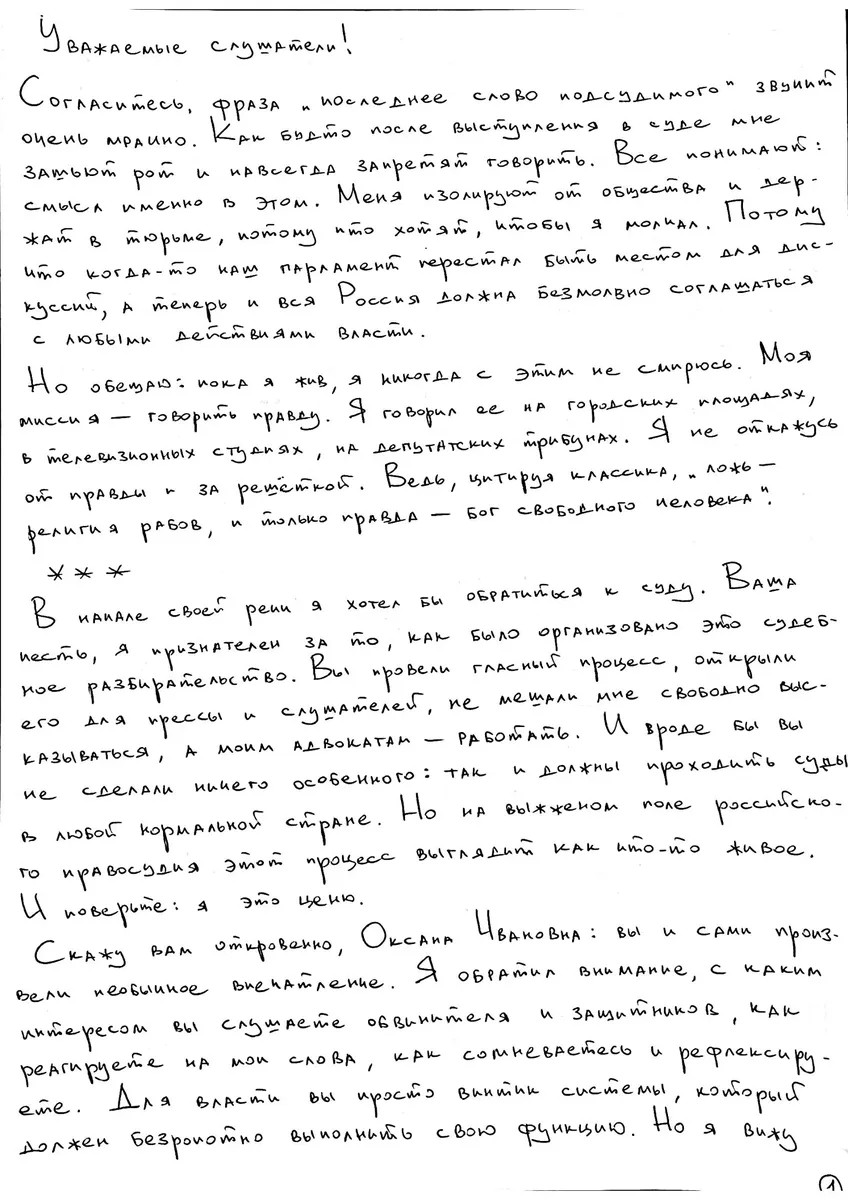 Уважаемые слушатели!
Согласитесь, фраза „последнее слово подсудимого" звучит
очень мрачно. Как будто после выступления в суде мне
зашьют рот и навсегда запретят говорить. Все понимают:
смысл именно в этом. Меня изолируют от общества и дер-
жат в тюрьме, потому что хотят, чтобы я молчал. Потому
что когда-то наш парламент перестал быть местом для дис-
куссий, а теперь и вся Россия должна безмолвно соглашаться
с любыми действиями власти.
Но обещаю: пока я жив, я никогда с этим не смирюсь. Моя
миссия — говорить правду. Я говорил ее на городских площадях,
в телевизионных студиях, на депутатских трибунах. Я не откажусь
от правды и за решёткой. Ведь, цитируя классика, „ложь —
религия рабов, и только правда — бог свободного человека".
* * *
В начале своей речи я хотел бы обратиться к суду. Ваша
честь, я признателен за то, как было организовано это судеб-
ное разбирательство. Вы провели гласный процесс, открыли
его для прессы и слушателей, не мешали мне свободно выс-
казываться, а моим адвокатам — работать. И вроде бы вы
не сделали ничего особенного: так и должны проходить суды
в любой нормальной стране. Но на выжженом поле российско-
го правосудия этот процесс выглядит как что-то живое.
И поверьте: я это ценю.
Скажу вам откровенно, Оксана Ивановна: вы и сами произ-
вели необычное впечатление. Я обратил внимание, с каким
интересом вы слушаете обвинителя и защитников, как
реагируете на мои слова, как сомневаетесь и рефлексиру-
ете. Для власти вы просто винтик системы, который
должен безропотно выполнить свою функцию. Но я вижу
1